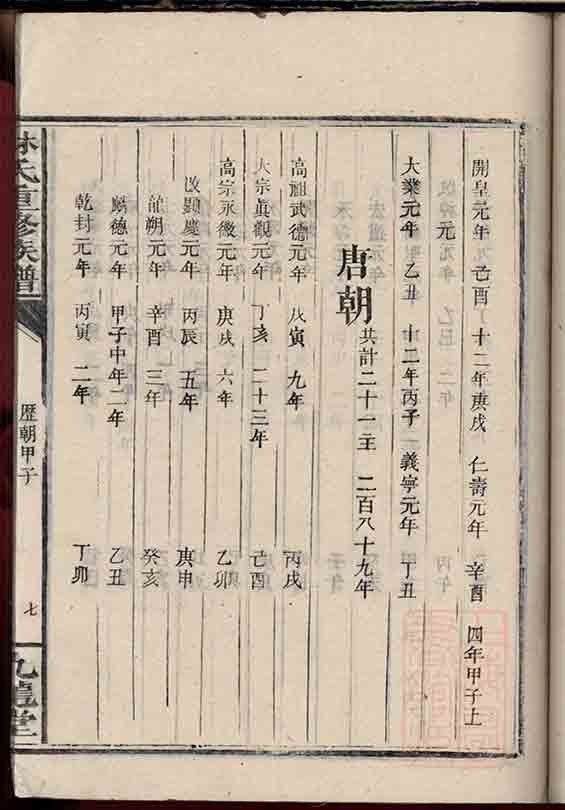 開皇元年 己酉 十二年庚戌 仁壽元年 辛酉 四年甲子上
元
大業元年 乙丑 十二年丙子 義寧元年 丁丑
唐朝 共計二十一主 二百八十九年
高祖武德元年 戊寅 九年 丙戌
太宗眞觀元年 丁亥 二十三年 己酉
高宗永徽元年 庚戌 六年 乙卯
改顯慶元年 丙辰 五年 庚申
龍朔元年 辛酉 三年 癸亥
麟德元年 甲子中年二年 乙丑
乾封元年 丙寅 二年 丁卯
林氏重修族譜 歷朝甲子 七 九龍堂